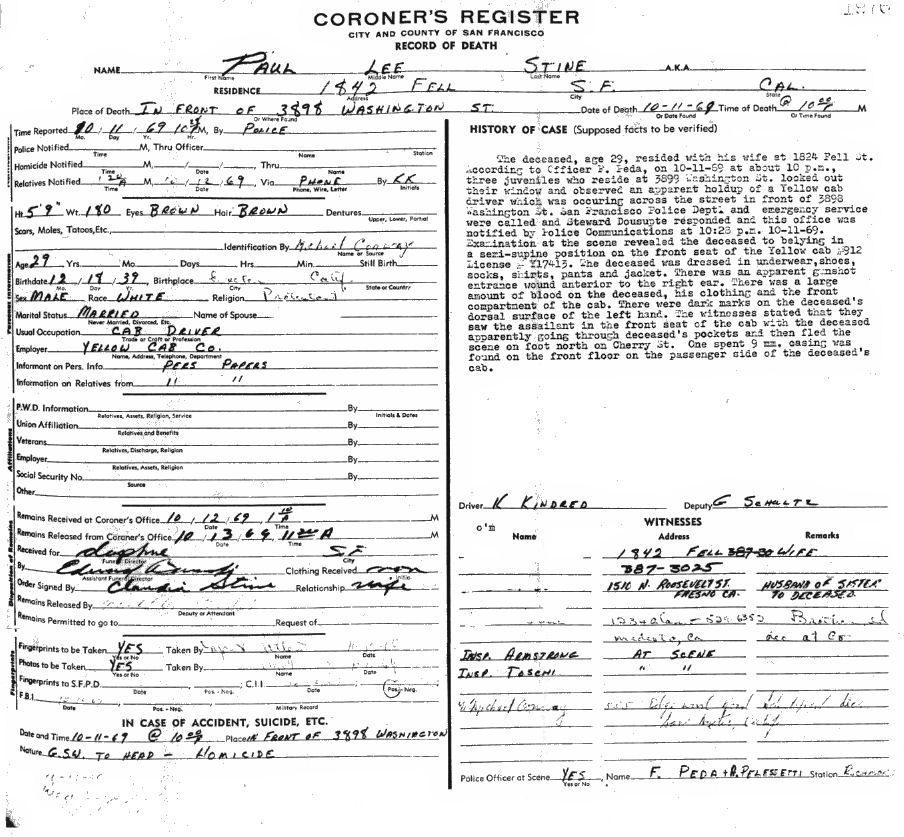 CORONER'S REGISTER
CITY AND COUNTY OF SAN FRANCISCO
RECORD OF DEATH
NAME PAUL LEE STINE A.K.A.
First Name Middle Name Last Name
RESIDENCE 1842 FELL S.F. CAL.
Address City State
Place of Death IN FRONT OF 3898 WASHINGTON ST. Date of Death 10-11-69 Time of Death @ 10 M
Or Where Found Or Date Found Or Time Found
Time Reported 10 11 69 M, By POLICE
Mo. Day Yr. Hr.
Police Notified M, Thru Officer
Time Name Station
Homicide Notified M, / / Thru
Time Date Name
Relatives Notified M, 12 69 Via PHONE By KK
Time Date Phone, Wire, Letter Initials
Ht. 5'9" Wt. 180 Eyes BROWN Hair BROWN Dentures
Upper, Lower, Partial
Scars, Moles, Tatoos, Etc.
Identification By Michael Conway
Name or Source
Age 29 Yrs. Mo. Days Hrs. Still Birth
Birthdate 12 18 39 Birthplace Calif
Mo. Day Yr. State or Country
Sex MALE Race WHITE Religion Protestant
Marital Status MARRIED Name of Spouse
Never Married, Divorced, Etc.
Usual Occupation CAB DRIVER
Trade or Craft or Profession
Employer YELLOW CAB CO.
Name, Address, Telephone, Department
Informant on Pers. Info. PERS PAPERS
Information on Relatives from " "
P.W.D. Information By
Relatives, Assets, Religion, Service Initials & Dates
Union Affiliation By
Relatives and Benefits
Veterans By
Relatives, Discharge, Religion
Employer By
Relatives, Assets, Religion
Social Security No. By
Source
Other
Affiliations
Remains Received at Coroner's Office 10 12 69 1 10 A M
Date Time
Remains Released from Coroner's Office 10 13 69 11 A M
Date Time
Received for Daphne S.F.
Funeral Director City
By Edward Clothing Received
Assistant Funeral Director Initials
Order Signed By Claudia Stine Relationship wife
Remains Released By
Deputy or Attendant
Remains Permitted to go to Request of
Disposition of Remains
Fingerprints to be Taken YES Taken By
Yes or No Name Date
Photos to be Taken YES Taken By
Yes or No Name Date
Fingerprints to S.F.P.D. C.I.I.
Date Pos. - Neg. Date Pos. - Neg.
F.B.I.
Date Pos. - Neg. Military Record
Fingerprints
IN CASE OF ACCIDENT, SUICIDE, ETC.
Date and Time 10-11-69 @ 10 Place IN FRONT OF 3898 WASHINGTON
Nature G.S.W. TO HEAD - HOMICIDE
HISTORY OF CASE (Supposed facts to be verified)
The deceased, age 29, resided with his wife at 1824 Fell St.
According to Officer F. Peda, on 10-11-69 at about 10 p.m.,
three juveniles who reside at 3899 Washington St. looked out
their window and observed an apparent holdup of a Yellow cab
driver which was occuring across the street in front of 3898
Washington St. San Francisco Police Dept. and emergency service
were called and Steward Dousupte responded and this office was
notified by Police Communications at 10:28 p.m. 10-11-69.
Examination at the scene revealed the deceased to belying in
a semi-supine position on the front seat of the Yellow cab #912
License # Y17413. The deceased was dressed in underwear,shoes,
socks, shirts, pants and jacket. There was an apparent gunshot
entrance wound anterior to the right ear. There was a large
amount of blood on the deceased, his clothing and the front
compartment of the cab. There were dark marks on the deceased's
dorsal surface of the left hand. The witnesses stated that they
saw the assailent in the front seat of the cab with the deceased
apparently going through deceased's pockets and then fled the
scene on foot north on Cherry St. One spent 9 mm. casing was
found on the front floor on the passenger side of the deceased's
cab.
Driver K KINDRED Deputy G SCHULTZ
o'm
WITNESSES
Name Address Remarks
1842 FELL 387-30 WIFE
387-3025
1510 N. ROOSEVELT ST. HUSBAND OF SISTER
FRESNO CA. TO DECEASED.
529-6352
Modesto, Ca
INSP. ARMSTRONG AT SCENE
INSP. TOSCHI " "
Michael Conway
Police Officer at Scene YES, Name F. PEDA + A. PELESSETTI Station
Yes or No